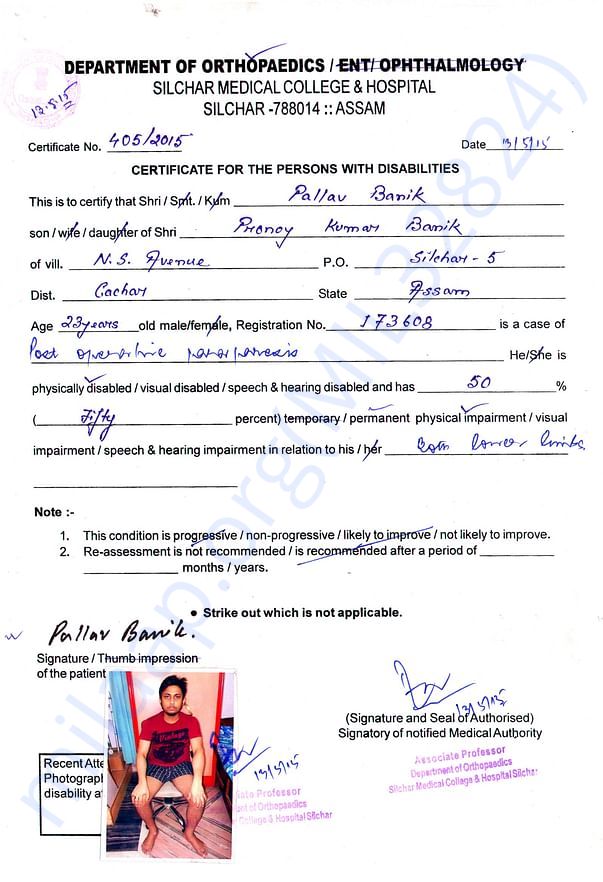 DEPARTMENT OF ORTHOPAEDICS / ENT/ OPHTHALMOLOGY
SILCHAR MEDICAL COLLEGE & HOSPITAL
SILCHAR -788014 :: ASSAM
13.5.15
Certificate No. 405/2015 Date 13/5/15
CERTIFICATE FOR THE PERSONS WITH DISABILITIES
This is to certify that Shri / Smt. / Kum Pallav Banik
son / wife / daughter of Shri Pronoy Kumar Banik
of vill. N.S. Avenue P.O. Silchar - 5
Dist. Cachar State Assam
Age 23years old male/female, Registration No. 173608 is a case of
Post operative paraparesis He/She is
physically disabled / visual disabled / speech & hearing disabled and has 50 %
( Fifty percent) temporary / permanent physical impairment / visual
impairment / speech & hearing impairment in relation to his / her Both lower limbs
Note :-
1. This condition is progressive / non-progressive / likely to improve / not likely to improve.
2. Re-assessment is not recommended / is recommended after a period of
months / years.
• Strike out which is not applicable.
Pallav Banik.
Signature / Thumb impression
of the patient
13/5/15
(Signature and Seal of Authorised)
Signatory of notified Medical Authority
Associate Professor
Department of Orthopaedics
Silchar Medical College & Hospital Silchar
Recent Atte
Photograph
disability a
13/5/15
iate Professor
ent of Orthopaedics
College & Hospital Silchar
milaap.org(MIL32824)